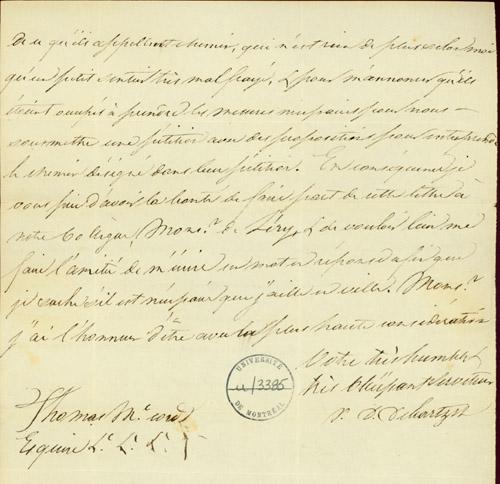 de ce qu'ils appellent chemin, qui n'est rien de plus selon moi
qu'un petit sentier très mal frayé, & pour m'annoncer qu'ils
étoient à prendre les mesures nécessaires pour nous
soumettre une pétition avec des propositions pour entreprendre
le chemin désigné dans leur pétition. En conséquence je
vous prie d'avoir la bonté de faire part de cette lettre à
votre Collègue, Mons.r de Léry, & de vouloir bien me
faire l'amitié de m'écrire un mot en réponse afin que
je sache s'il est nécessaire que j'aille en ville. Mons.r
j'ai l'honneur d'être avec la plus haute considération
Votre très humble &
très obéissant serviteur
P. D. Debartzch
UNIVERSITÉ
U/3385
DE MONTRÉAL
Thomas Mc cord
Esquire